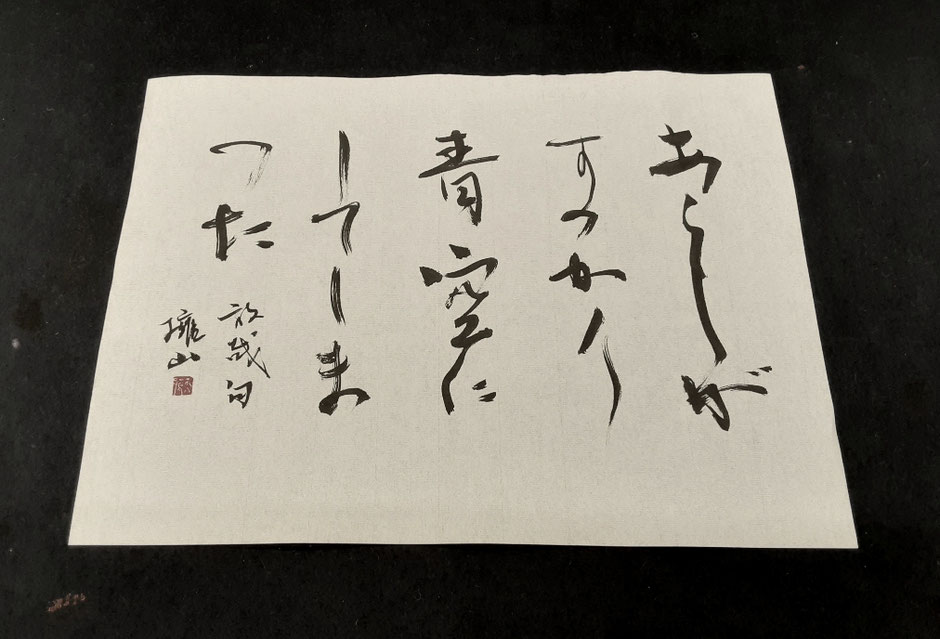 あらしが
すつかり
青空に
してしま
つた
放哉句
擁山